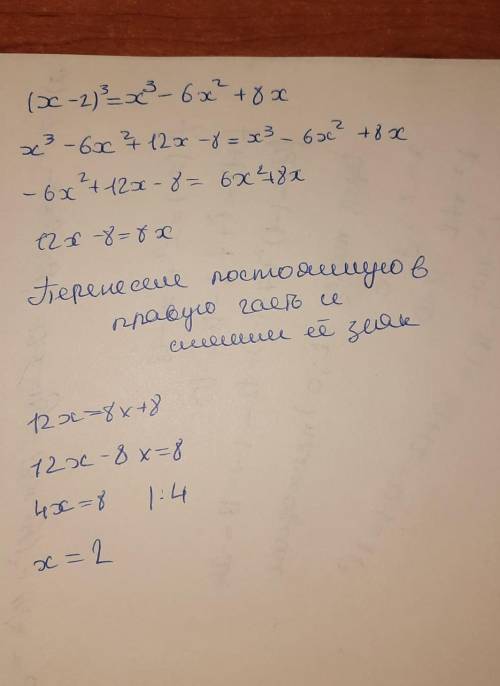 (x-2)³=x³-6x²+8x
x³-6x²+12x-8=x³-6x²+8x
-6x²+12x-8= 6x²+8x
12x-8=8x
Перенесем постоянную в
правую часть и
сменим её знак
12x=8x+8
12x-8x=8
4x=8 |:4
x=2